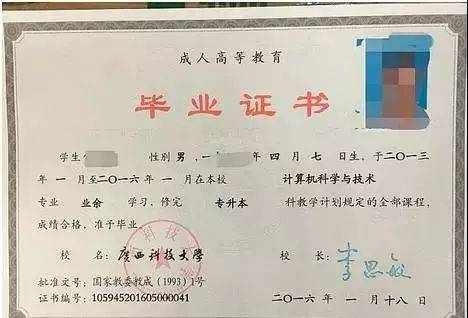 成人高等教育
毕业证书
学生 性别 男，一 年 四 月 七 日生，于二〇一三
年 一 月至二〇一六 年 一 月在本校 计算机科学与技术
专业 业余 学习，修完 专升本 科教学计划规定的全部课程，
成绩合格，准予毕业。
校 名：广西科技大学 校 长：李思敏
批准文号：国家教委教成（1993）1号
证书编号：105945201605000041 二〇一六 年 一 月十八日